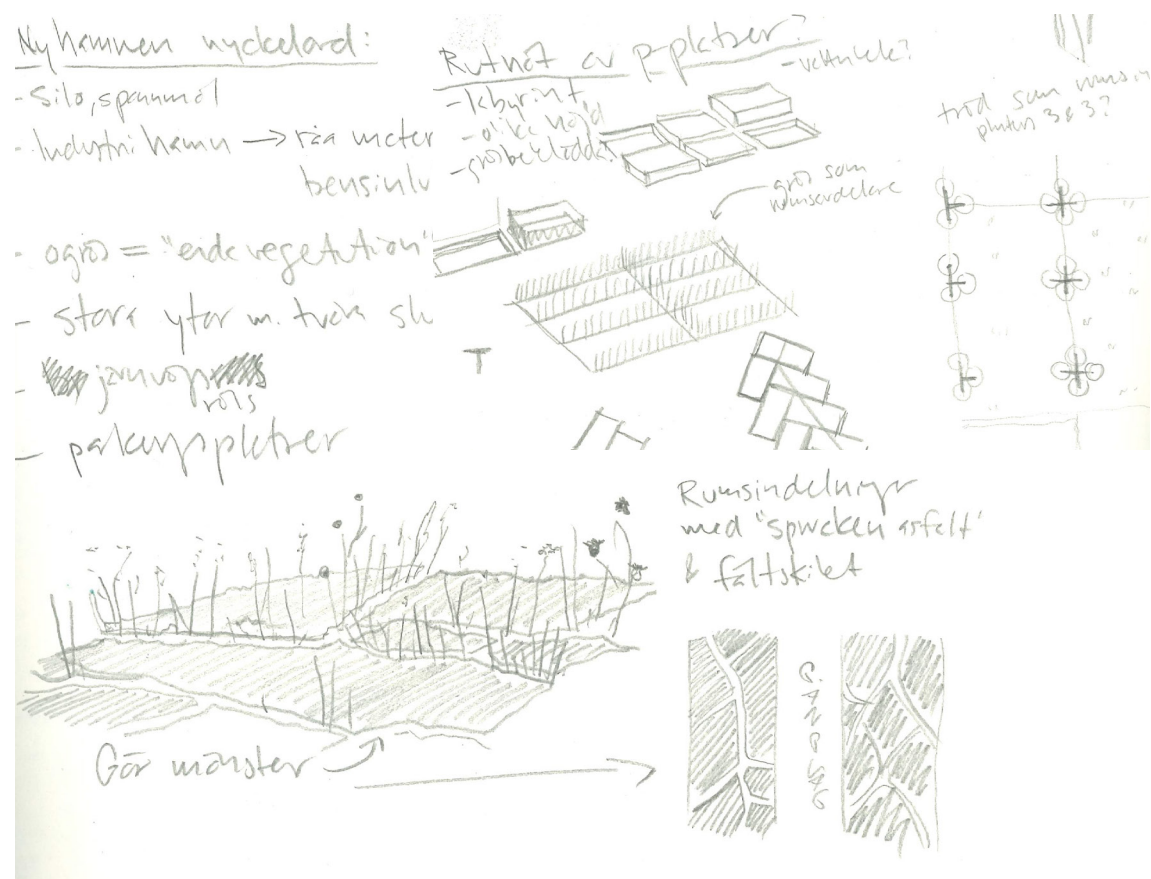 Nyhamnen nyckelord:
- Silo, spannmål
- Industrihamn → råa mater
bensinlu
- ogräs = "eidevegetation"
- stora ytor m. tvära sk
- järnvägs
räls
- parkeringsplatser
Rutnät av p-platser?
- labyrint
- olika höjd
- gräsbeklädda?
- vattnlek?
gräs som
rumsavdelare
träd som
planteras 3 & 3?
Gör mönster
Rumsindelningar
med "sprucken asfalt"
& fältskikt
GÅNGVÄG